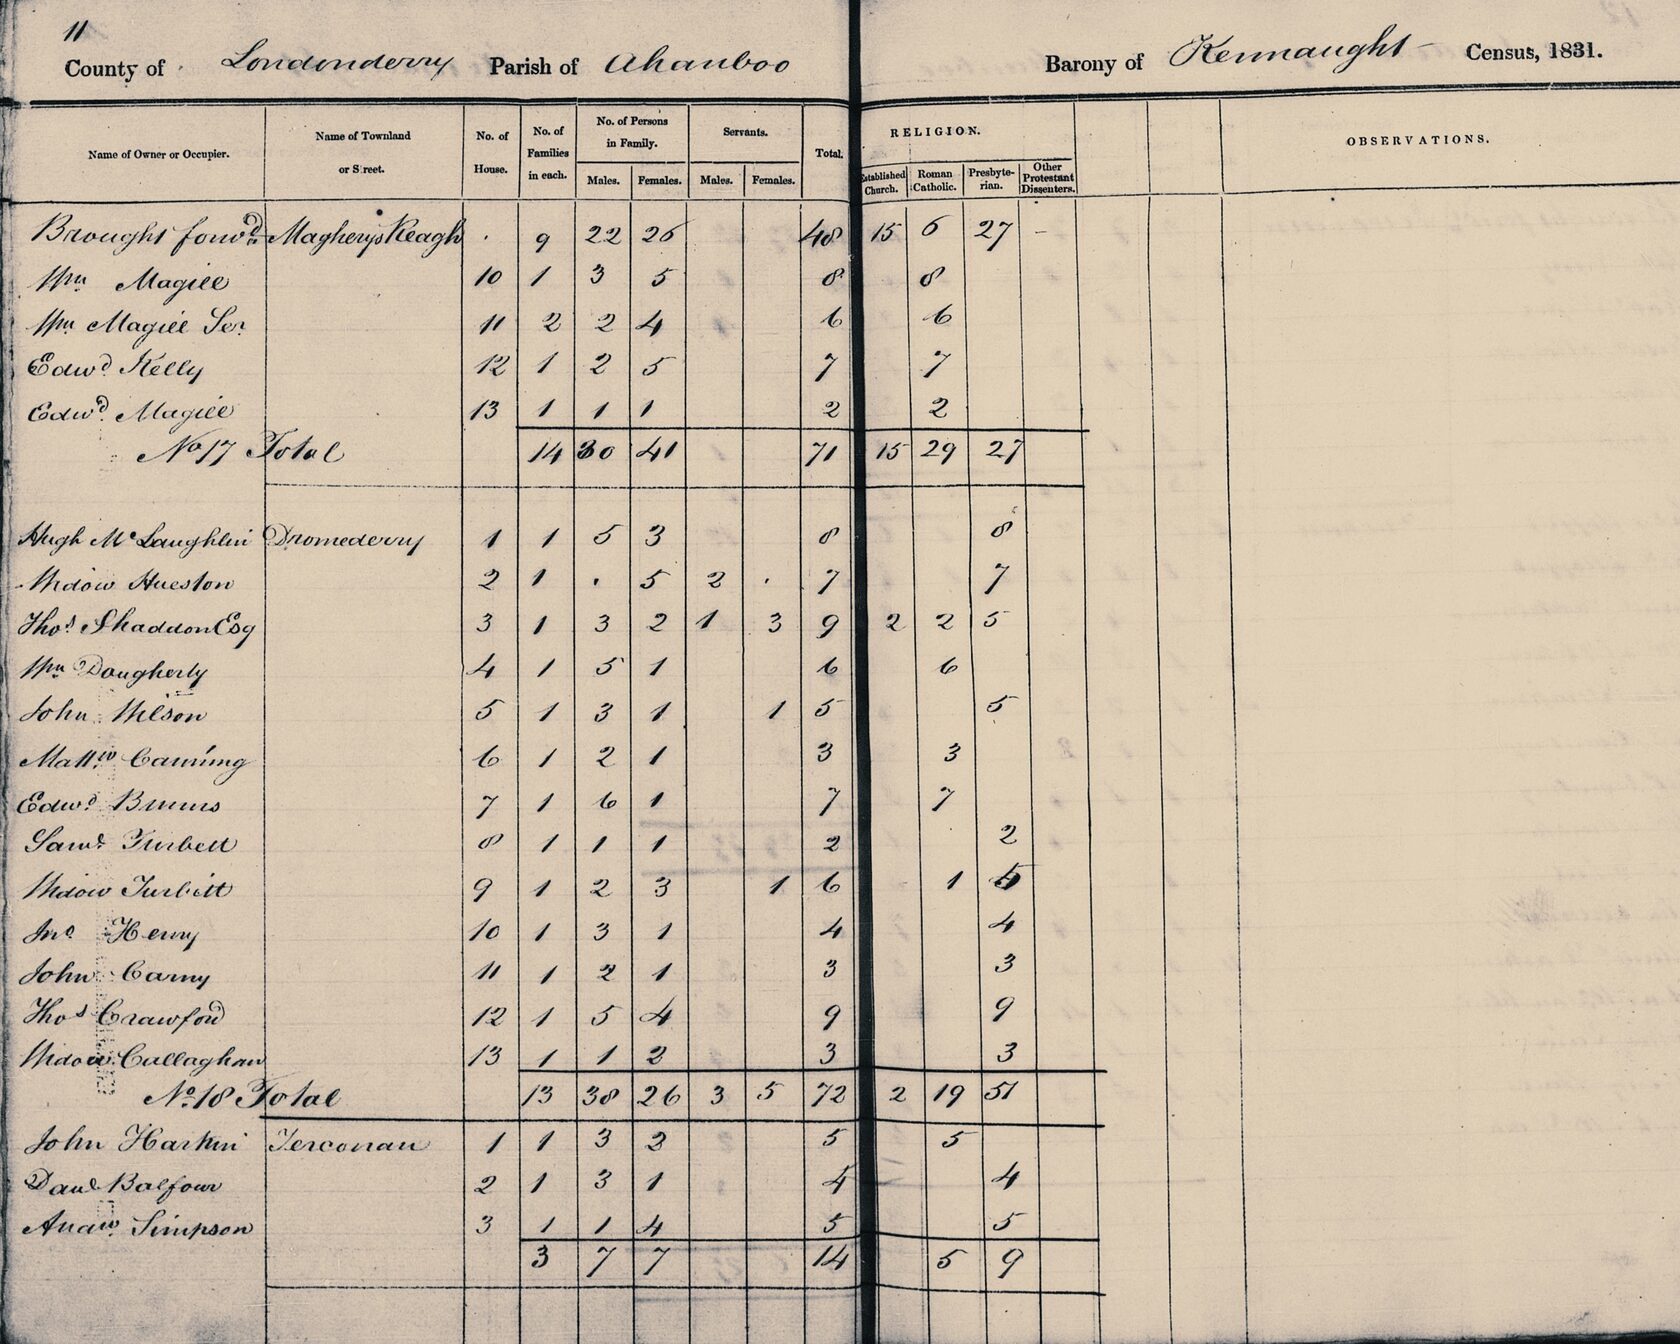 11
County of Londonderry Parish of Ahanboo Barony of Kennaught Census, 1831.
Name of Owner or Occupier. Name of Townland or Street. No. of House. No. of Families in each. No. of Persons in Family. Males. Females. Servants. Males. Females. Total. RELIGION. Established Church. Roman Catholic. Presbyterian. Other Protestant Dissenters. OBSERVATIONS.
Brought forwd. Magheryskeagh . 9 22 26 48 15 6 27 -
Wm Magill 10 1 3 5 8 8
Wm Magill Senr 11 2 2 4 6 6
Edwd Kelly 12 1 2 5 7 7
Edwd Magill 13 1 1 1 2 2
No 17 Total 14 30 41 71 15 29 27
Hugh McLaughlin Dromederry 1 1 5 3 8 8
Widow Hueston 2 1 . 5 2 . 7 7
Thos Shaddon Esq 3 1 3 2 1 3 9 2 2 5
Wm Dougherty 4 1 5 1 6 6
John Wilson 5 1 3 1 1 5 5
Mattw Canning 6 1 2 1 3 3
Edwd Binnis 7 1 6 1 7 7
Saml Turbett 8 1 1 1 2 2
Widow Turbitt 9 1 2 3 1 6 1 5
Jno Henry 10 1 3 1 4 4
John Carny 11 1 2 1 3 3
Thos Crawford 12 1 5 4 9 9
Widow Callaghan 13 1 1 2 3 3
No. 18 Total 13 38 26 3 5 72 2 19 51
John Harkin Terconan 1 1 3 2 5 5
Danl Balfour 2 1 3 1 4 4
Andw Simpson 3 1 1 4 5 5
3 7 7 14 5 9